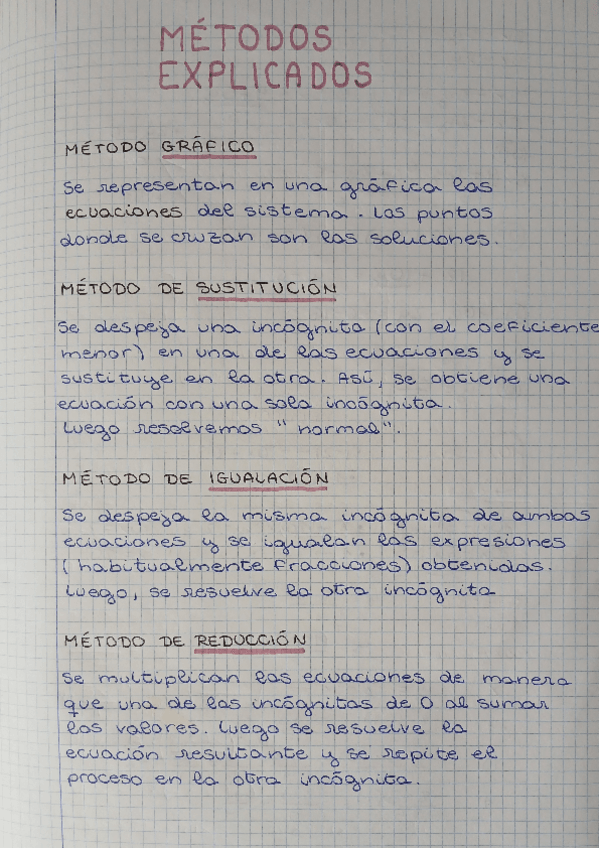 MÉTODOS
EXPLICADOS
MÉTODO GRÁFICO
Se representan en una gráfica las
ecuaciones del sistema. Los puntos
donde se cruzan son las soluciones.
MÉTODO DE SUSTITUCIÓN
Se despeja una incógnita (con el coeficiente
menor) en una de las ecuaciones y se
sustituye en la otra. Así, se obtiene una
ecuación con una sola incógnita.
Luego resolvemos "normal".
MÉTODO DE IGUALACIÓN
Se despeja la misma incógnita de ambas
ecuaciones y se igualan las expresiones
(habitualmente fracciones) obtenidas.
Luego, se resuelve la otra incógnita
MÉTODO DE REDUCCIÓN
Se multiplican las ecuaciones de manera
que una de las incógnitas de 0 al sumar
los valores. Luego se resuelve la
ecuación resultante y se repite el
proceso en la otra incógnita.